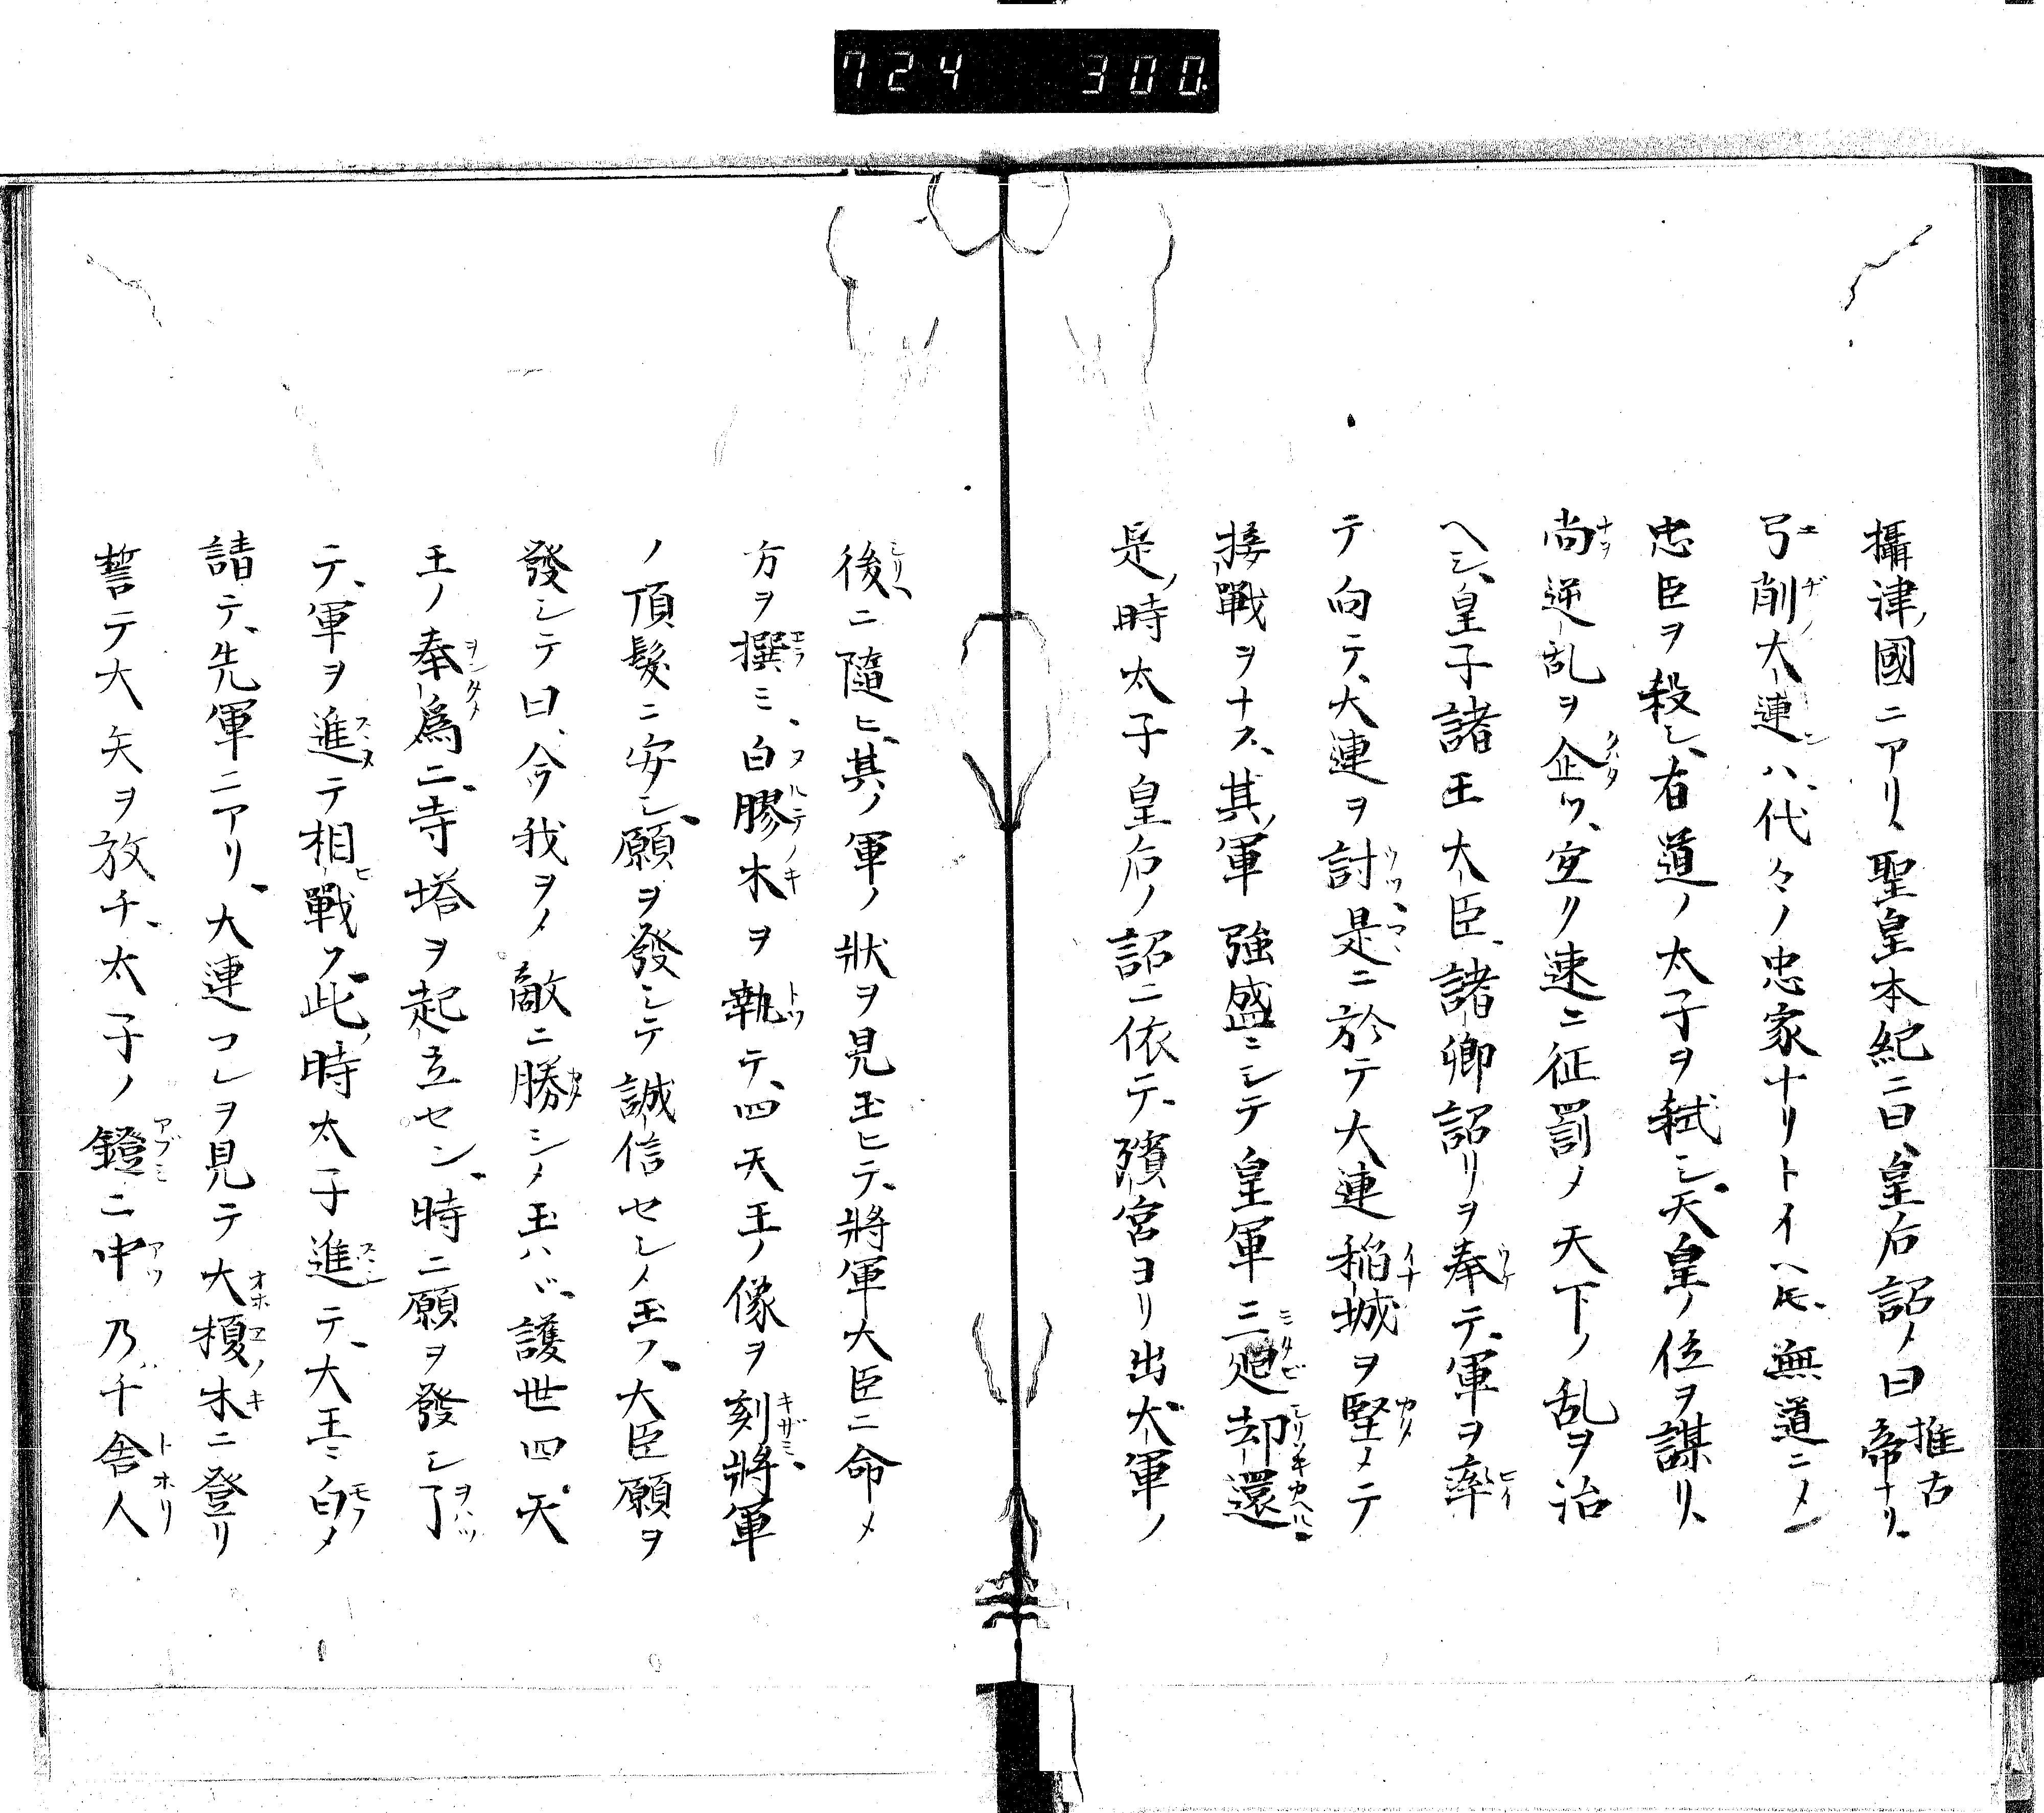 724 300
攝津ノ國ニアリ、聖皇本紀ニ曰、皇后詔〆曰推古帝ナリ、
弓削大連ハ、代々ノ忠家ナリトイヘ𪜈、無道ニ〆
忠臣ヲ殺シ、有道ノ太子ヲ弑シ、天皇ノ位ヲ謀リ、
尚逆乱ヲ企ツ、宜ク速ニ征罰〆天下ノ乱ヲ治
ヘシ、皇子諸王大臣、諸卿詔リヲ奉テ、軍ヲ率
テ向テ、大連ヲ討、是ニ於テ大連稲城ヲ堅メテ
接戰ヲナス、其ノ軍強盛ニシテ皇軍三廻却還
是ノ時太子皇后ノ詔ニ依テ、殯宮ヨリ出大軍ノ
後ニ隨ヒ、其ノ軍ノ狀ヲ見玉ヒテ、將軍大臣ニ命〆
方ヲ撰ミ、白膠木ヲ執テ、四天王ノ像ヲ刻、將軍
ノ頂髮ニ安シ、願ヲ發シテ誠信セシメ玉フ、大臣願ヲ
發シテ曰、今我ヲ〆敵ニ勝シメ玉ハヾ、護世四天
王ノ奉爲ニ、寺塔ヲ起立セン、時ニ願ヲ發シ了
テ、軍ヲ進テ相戰フ、此ノ時太子進テ、大王ニ白〆
請テ、先軍ニアリ、大連コレヲ見テ大榎木ニ登リ
誓テ大矢ヲ放チ、太子ノ鐙ニ中ツ乃千舎人